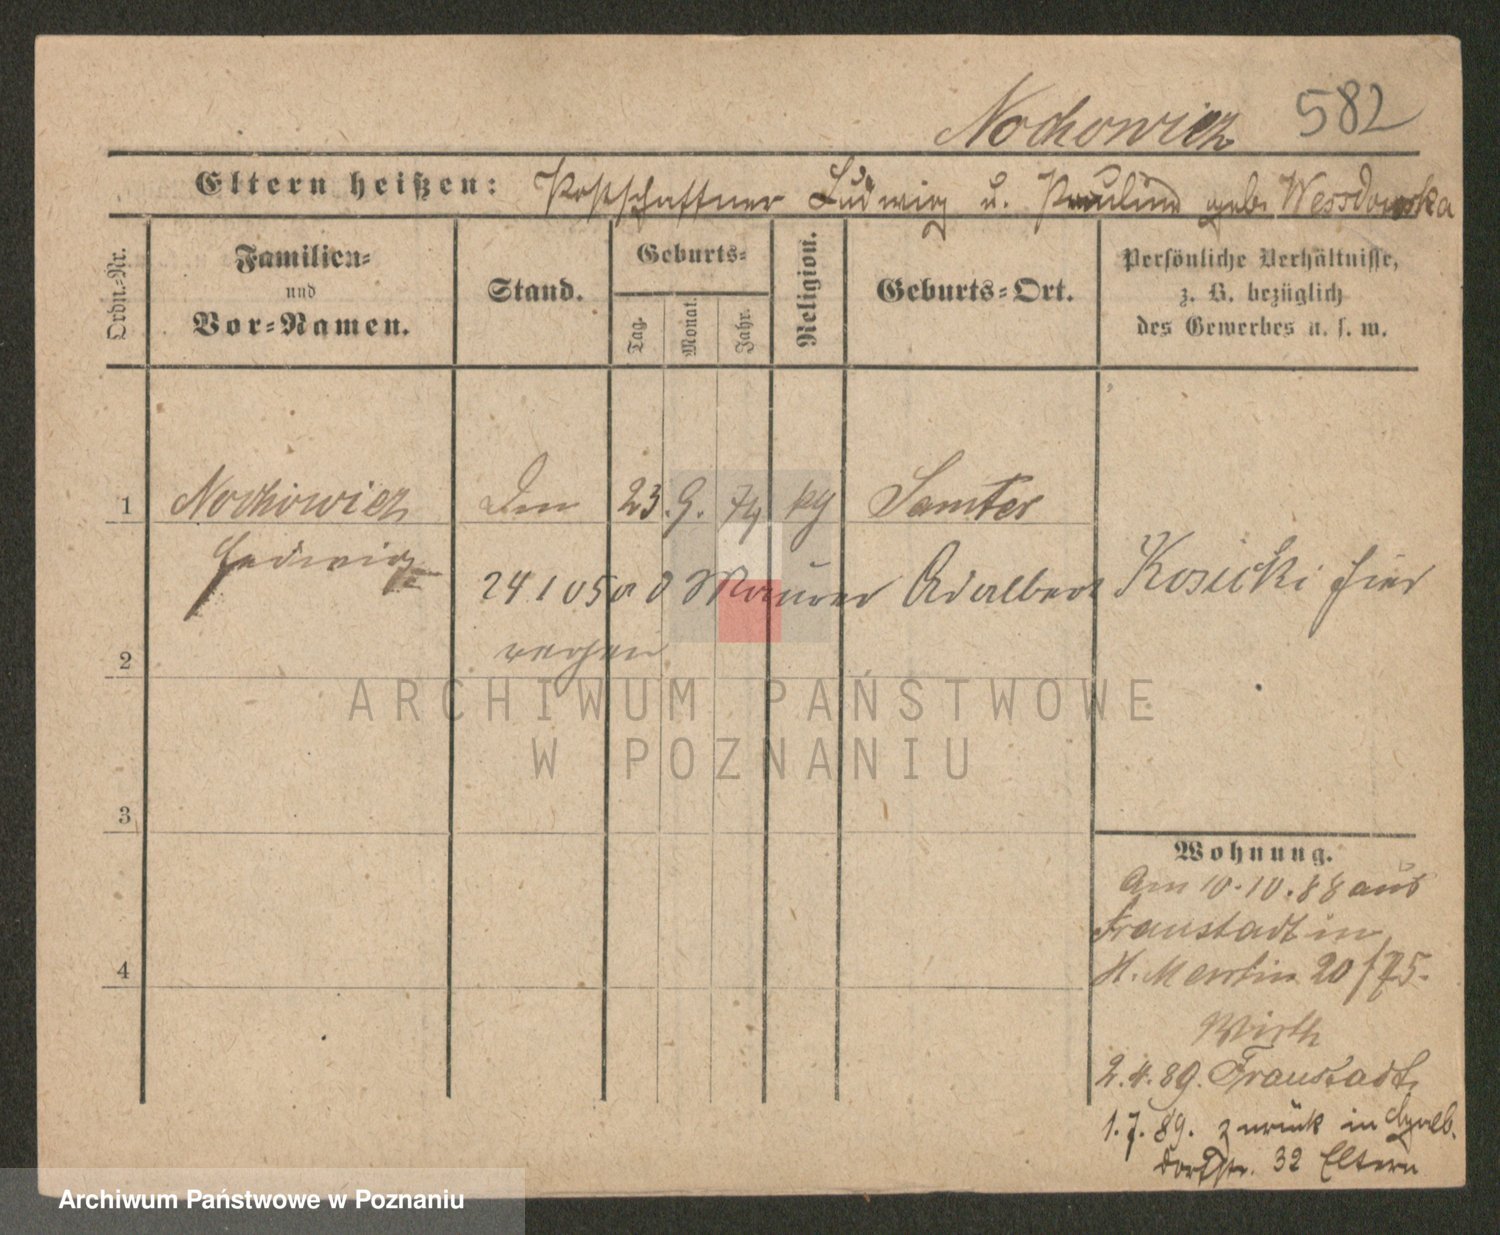 Nochowicz 582
Eltern heißen: Postschaffner Ludwig u. Pauline geb. Wessdowska
Ordn.-Nr.
Familien-
und
Vor-Namen.
Stand.
Geburts-
Tag.
Monat.
Jahr.
Religion.
Geburts-Ort.
Persönliche Verhältnisse,
z. B. bezüglich
des Gewerbes u. s. w.
1 Nochowicz 23. 9. 74 kg Samter
Hedwig
24 10 Maurer Adalbert Kosicki hier
2
ARCHIWUM PAŃSTWOWE
W POZNANIU
3
4
Wohnung.
Am 10.10.88 aus
Fraustadt in
St. Martin 20/75.
Wirth
2.4.89. Fraustadt
1.7.89. zurück in
32 Eltern
Archiwum Państwowe w Poznaniu